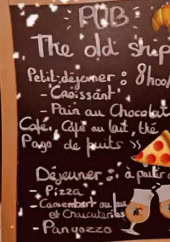 PUB
The old ship
Petit-déjeuner : 8h00/
"Croissant"
- Pain au Chocolat
Café, Café au lait, thé
Pago de fruits »
Déjeuner : à partir d
- Pizza
- Camembert au
et Charcuteries
- Panyozzo